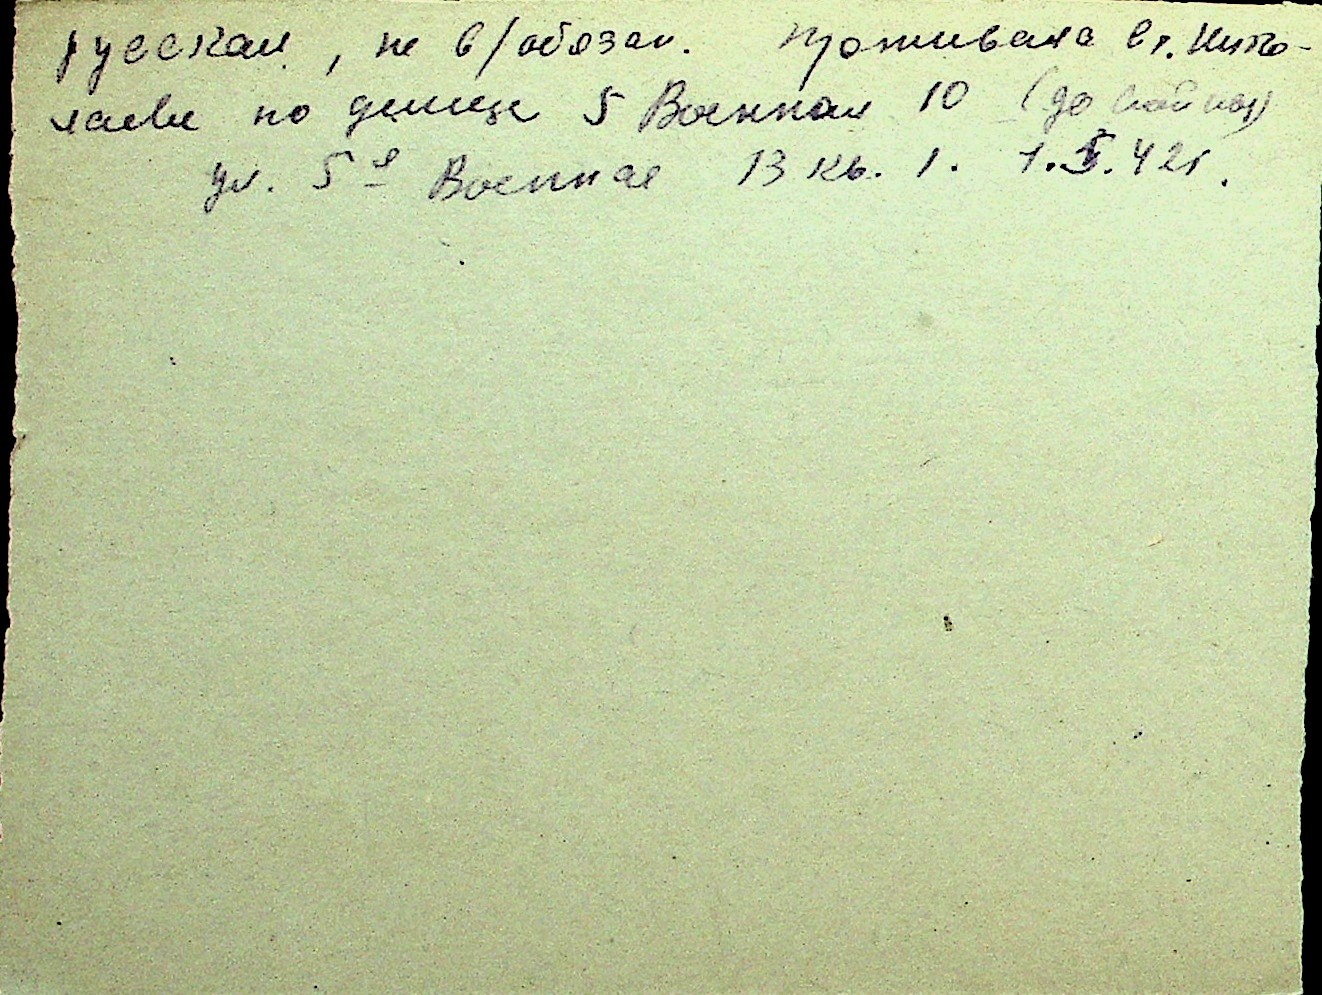 русская, не в/обязан. Проживала в г. Нико-
лаеве по улице 5 Военная 10 (до войны)
ул. 5я Военная 13 кв. 1. 1.5.42г.